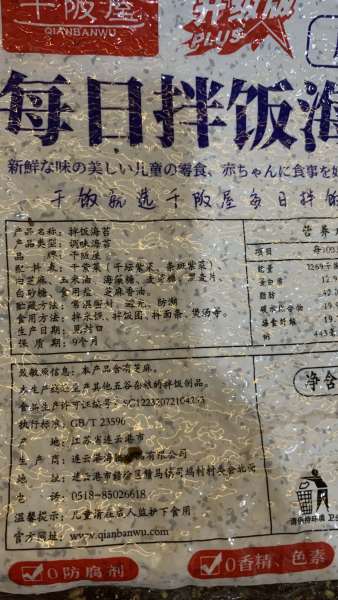 千阪屋
QIANBANWU
升级版
PLUS
每日拌饭海
新鮮な味の美しい儿童の零食、赤ちゃんに食事を好
干饭就选千阪屋每日拌饭
产品名称：拌饭海苔
产品类型：调味海苔
品 牌：千阪屋
配 料 表：干紫菜（干坛紫菜、条斑紫菜）
白芝麻、玉米油、海藻糖、麦芽糖
白砂糖、食用盐、芝麻香油。
贮藏方法：常温密封、避光、防潮
食用方法：拌米饭、拌饭团、拌面条、煲汤等。
生产日期：见封口
保 质 期：9个月
营养
项目
能量
蛋白质
脂肪
碳水化合物
膳食纤维
钠
致敏原信息：本产品含有芝麻。
此生产线还生产其他五谷杂粮的拌饭制品。
食品生产许可证编号：
执行标准：GB/T 23596
产 地：江苏省连云港市
生 产 商：连云港海
有限公司
地 址：连云港市赣榆区
电 话：0518-85026618
温馨提示：儿童请在后人监护下食用
官方网址：www.qianbanwu.com
净含
请保持环境 卫
0防腐剂
0香精、色素